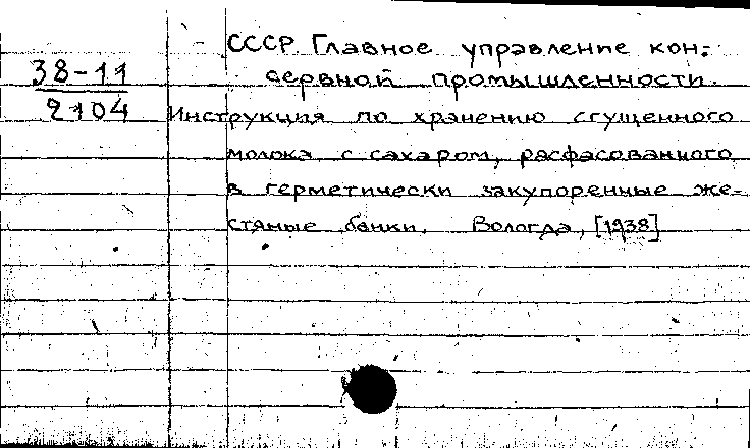 СССР Главное управление кон-
38-11
сервной промышленности.
2104
Инструкция по хранению сгущенного
молока с сахаром, расфасованного
в герметически закупоренные же-
стяные банки. Вологда, [1938]